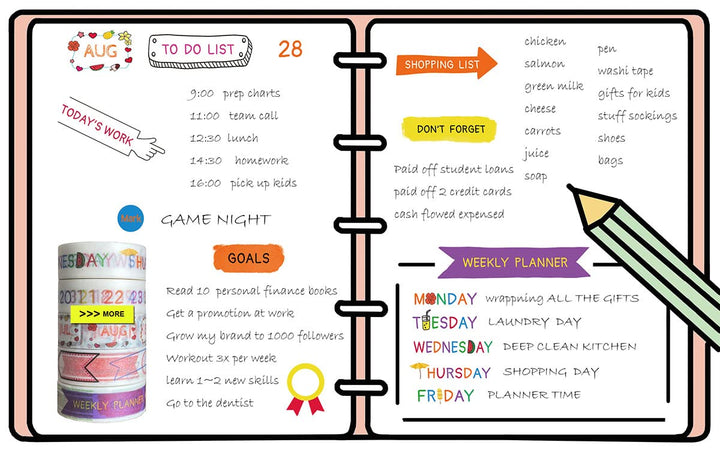 AUG
TO DO LIST
28
TODAY'S WORK
9:00 prep charts
11:00 team call
12:30 lunch
14:30 homework
16:00 pick up kids
Mark
GAME NIGHT
GOALS
Read 10 personal finance books
Get a promotion at work
Grow my brand to 1000 followers
Workout 3x per week
learn 1~2 new skills
Go to the dentist
>>> MORE
AUG
WEEKLY PLANNER
SHOPPING LIST
chicken
salmon
green milk
cheese
carrots
juice
soap
pen
washi tape
gifts for kids
stuff sockings
shoes
bags
DON'T FORGET
Paid off student loans
paid off 2 credit cards
cash flowed expensed
WEEKLY PLANNER
MONDAY wrappning ALL THE GIFTS
TUESDAY LAUNDRY DAY
WEDNESDAY DEEP CLEAN KITCHEN
THURSDAY SHOPPING DAY
FRIDAY PLANNER TIME